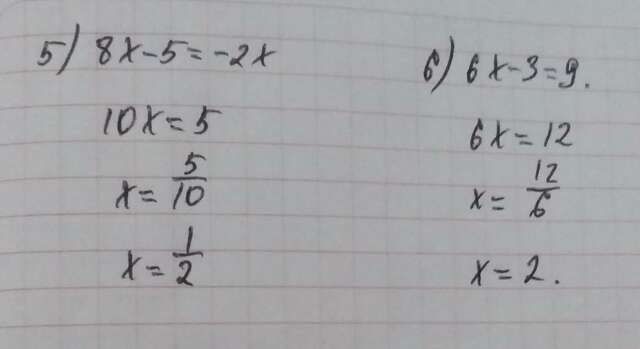 5) 8x-5=-2x
10x=5
x=5/10
x=1/2
6) 6x-3=9.
6x=12
x=12/6
x=2.